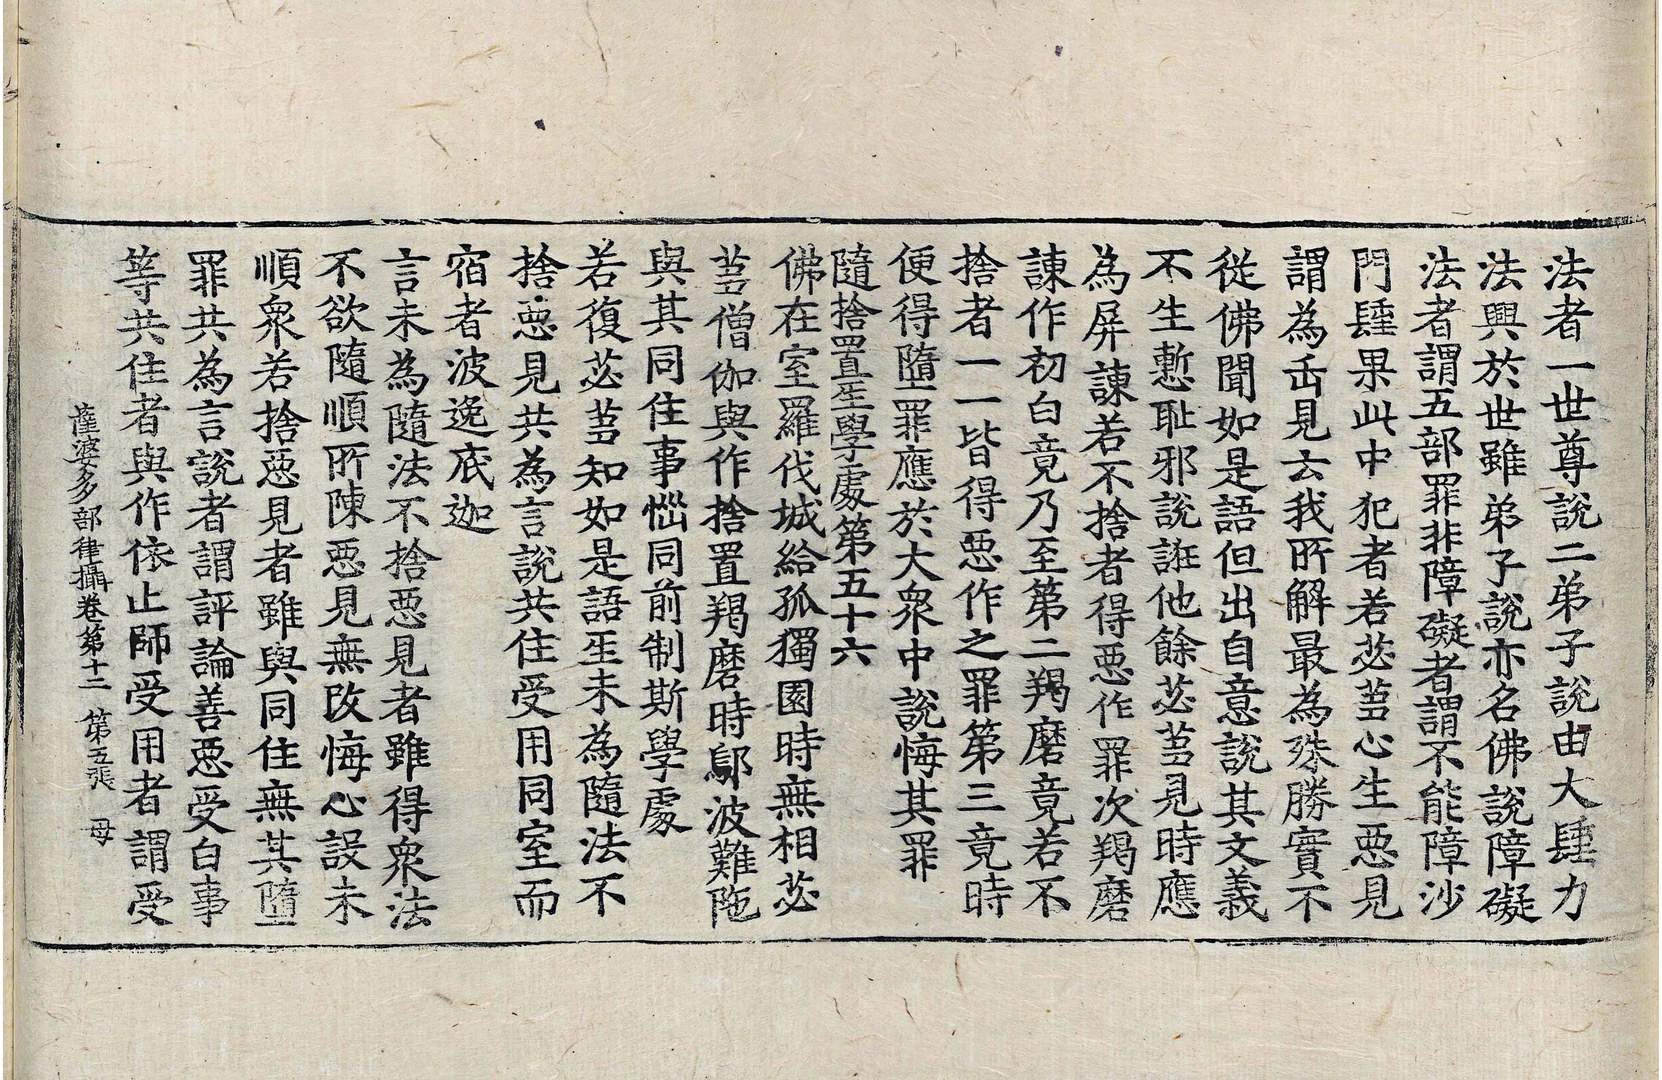 法者一世尊說二弟子說由大𨽻力
法興於世雖弟子說亦名佛說障礙
法者謂五部罪非障礙者謂不能障沙
門𨽻果此中犯者若苾芻心生惡見
謂為岳見云我所解最為殊勝實不
從佛聞如是語但出自意說其文義
不生慙耻邪說誑他餘苾芻見時應
為屏諫若不捨者得惡作罪次羯磨
諫作初白竟乃至第二羯磨竟若不
捨者一一皆得惡作之罪第三竟時
便得墮罪應於大衆中說悔其罪
隨捨置𤯔學處第五十六
佛在室羅伐城給孤獨園時無相苾
芻僧伽與作捨置羯磨時鄔波難陁
與其同住事惱同前制斯學處
若復苾芻知如是語𤯔未為隨法不
捨惡見共為言說共住受用同室而
宿者波逸底迦
言未為隨法不捨惡見者雖得衆法
不欲隨順所陳惡見無改悔心設未
順衆若捨惡見者雖與同住無其墮
罪共為言說者謂評論善惡受白事
等共住者與作依止師受用者謂受
薩婆多部律攝卷第十二 第五張 母